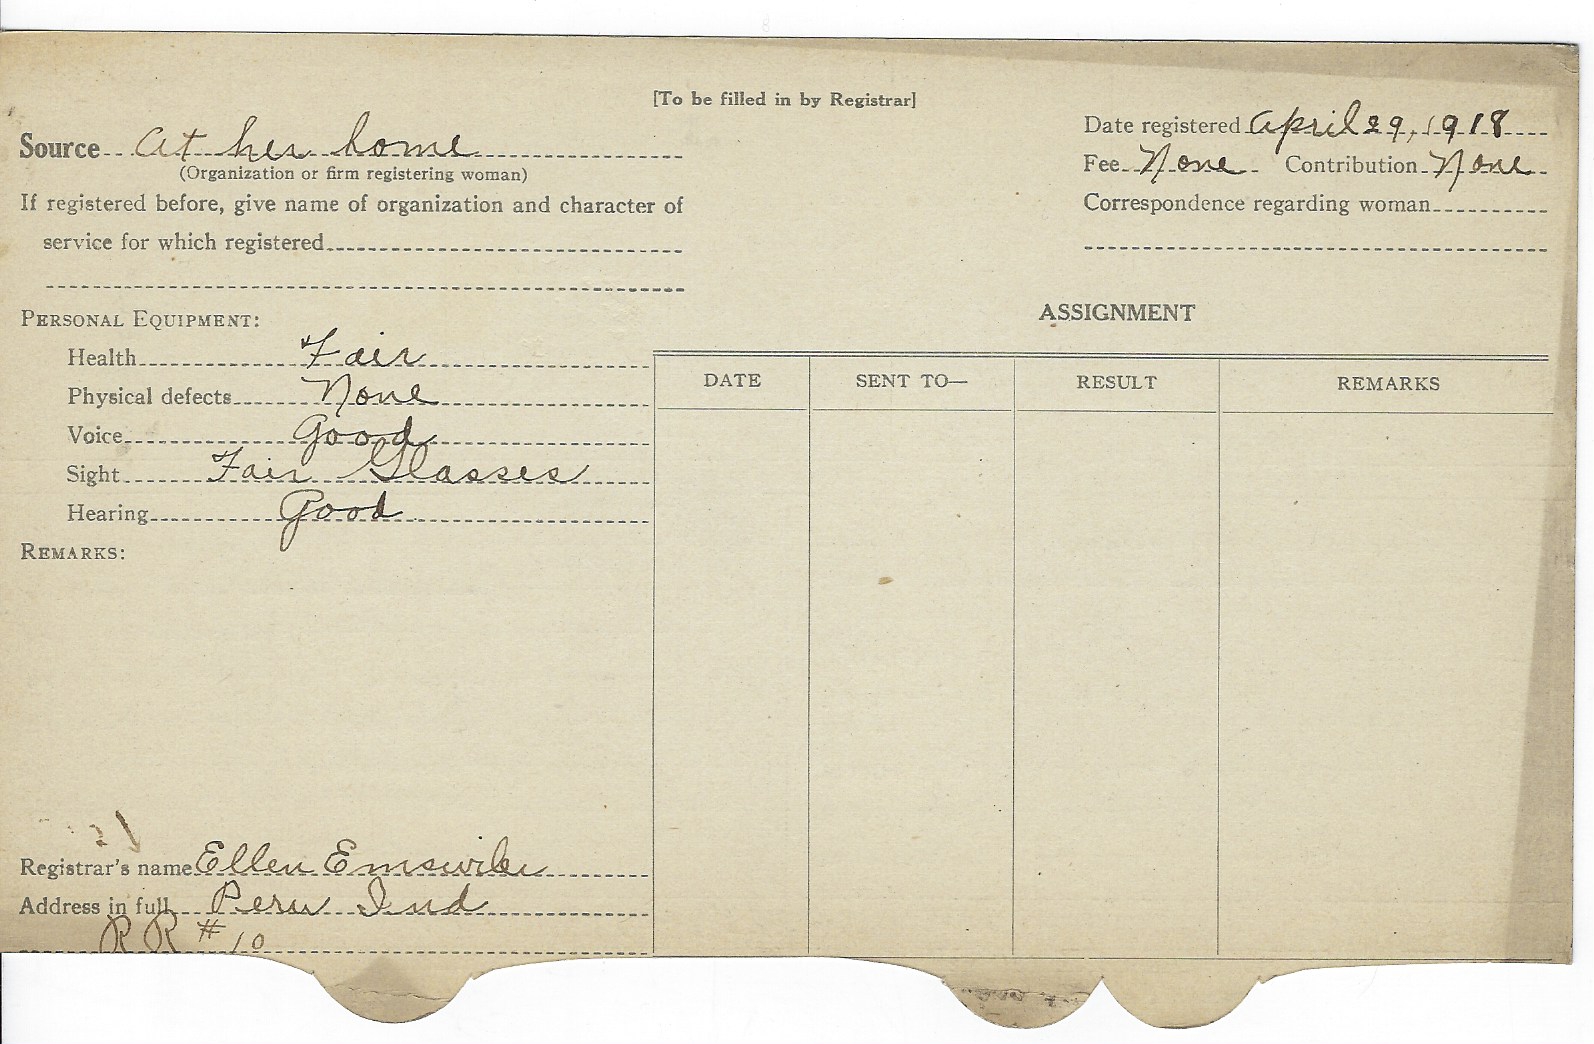 [To be filled in by Registrar]
Source At her home
(Organization or firm registering woman)
If registered before, give name of organization and character of
service for which registered
Date registered April 29, 1918
Fee None Contribution None
Correspondence regarding woman
PERSONAL EQUIPMENT:
Health Fair
Physical defects None
Voice Good
Sight Fair Glasses
Hearing Good
REMARKS:
ASSIGNMENT
DATE SENT TO— RESULT REMARKS
Registrar's name Ellen Emswiler
Address in full Peru Ind
RR #10